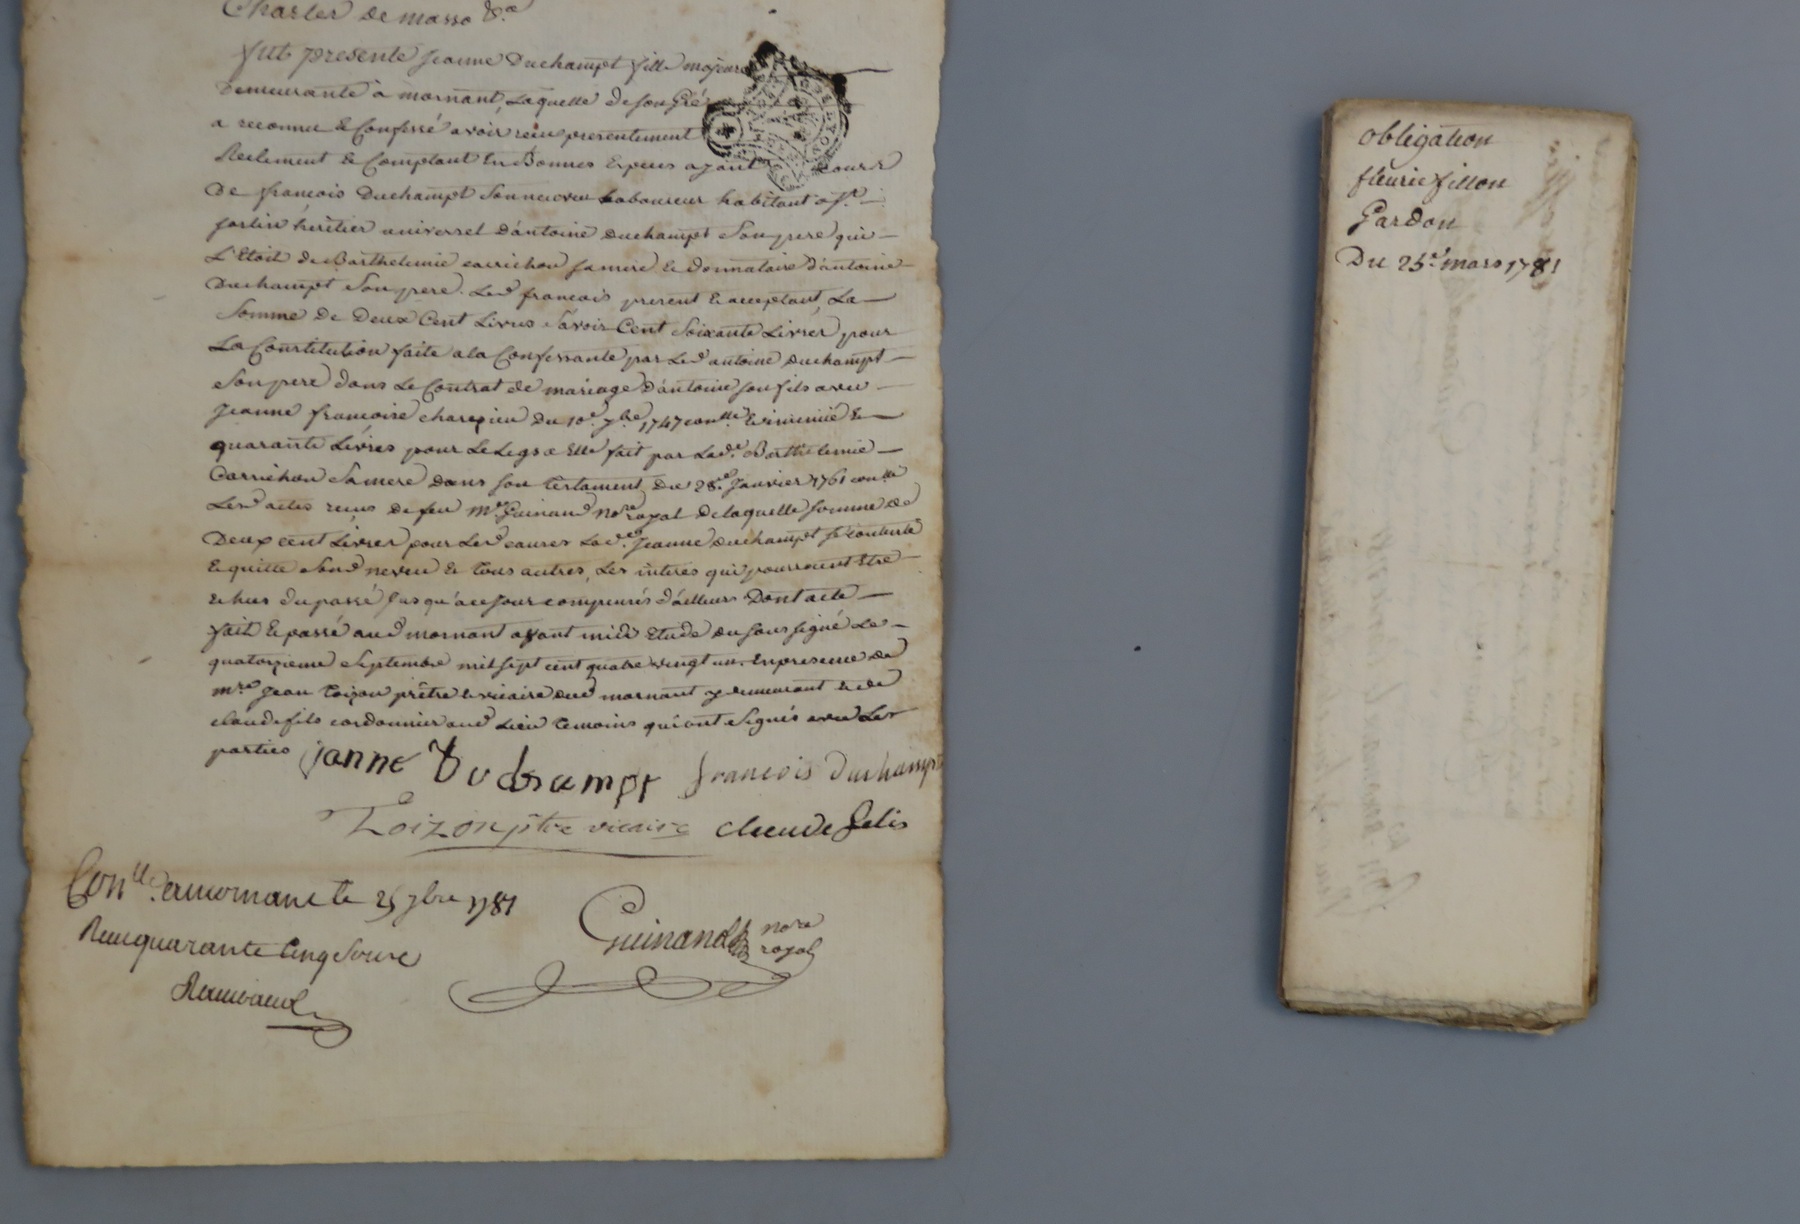 Charles de masso &.ª
fut presente Jeanne Duchampt fille majeure
Demeurante à mornant, Laquelle de son Gré
a reconnu & Confessé avoir reçu presentement
Reelement & Comptant En Bonnes Especes ayant cours
De françois Duchampt son neveu Laboureur habitant a S.t
sorlin heritier universel d'antoine duchampt son pere qui
L'Etoit de Barthelemie carrichon sa mere & donnataire d'antoine
Duchampt son pere. Led françois present & acceptant, La
Somme De Deux Cent Livres sávoir Cent Soixante Livres pour
La Constitution faite a la Confessante par Led antoine duchampt
son pere dans Le Contrat de mariage d'antoine son fils avec
Jeanne françoise charepieu Du 10.e 7.bre 1747 con.lle & insinué &
quarante Livres pour Le Legs a Elle fait par Lad.e Barthelemie
Carrichon sa mere dans son testament du 28.e Janvier 1761 con.lle
Les actes reçus de feu M.e Guinand No.re royal de laquelle somme de
Deux cent Livres pour Les causes Lad.e Jeanne duchampt se contente
& quitte son neveu & tous autres, Les interes qui pourroient Etre
Echus du passé Jusqu'a ce Jour compensés d'ailleurs Dont acte
fait & passé aud mornant avant midi Etude du soussigné Le
quatorzieme Septembre mil sept cent quatre vingt un. En presence de
m.re Jean Loizon prêtre & vicaire dud mornant y demeurant & de
claude felis cordonnier aud Lieu temoins qui ont signés avec Les
parties
janne Duchampt françois duchampt
Loizon ptre vicaire claude felis
Con.lle a mornant le 25 7bre 1781
Reçu quarante Cinq sous
Guinand no.re royal
obligation
fleurie fillon
Gardon
Du 25.e mars 1781